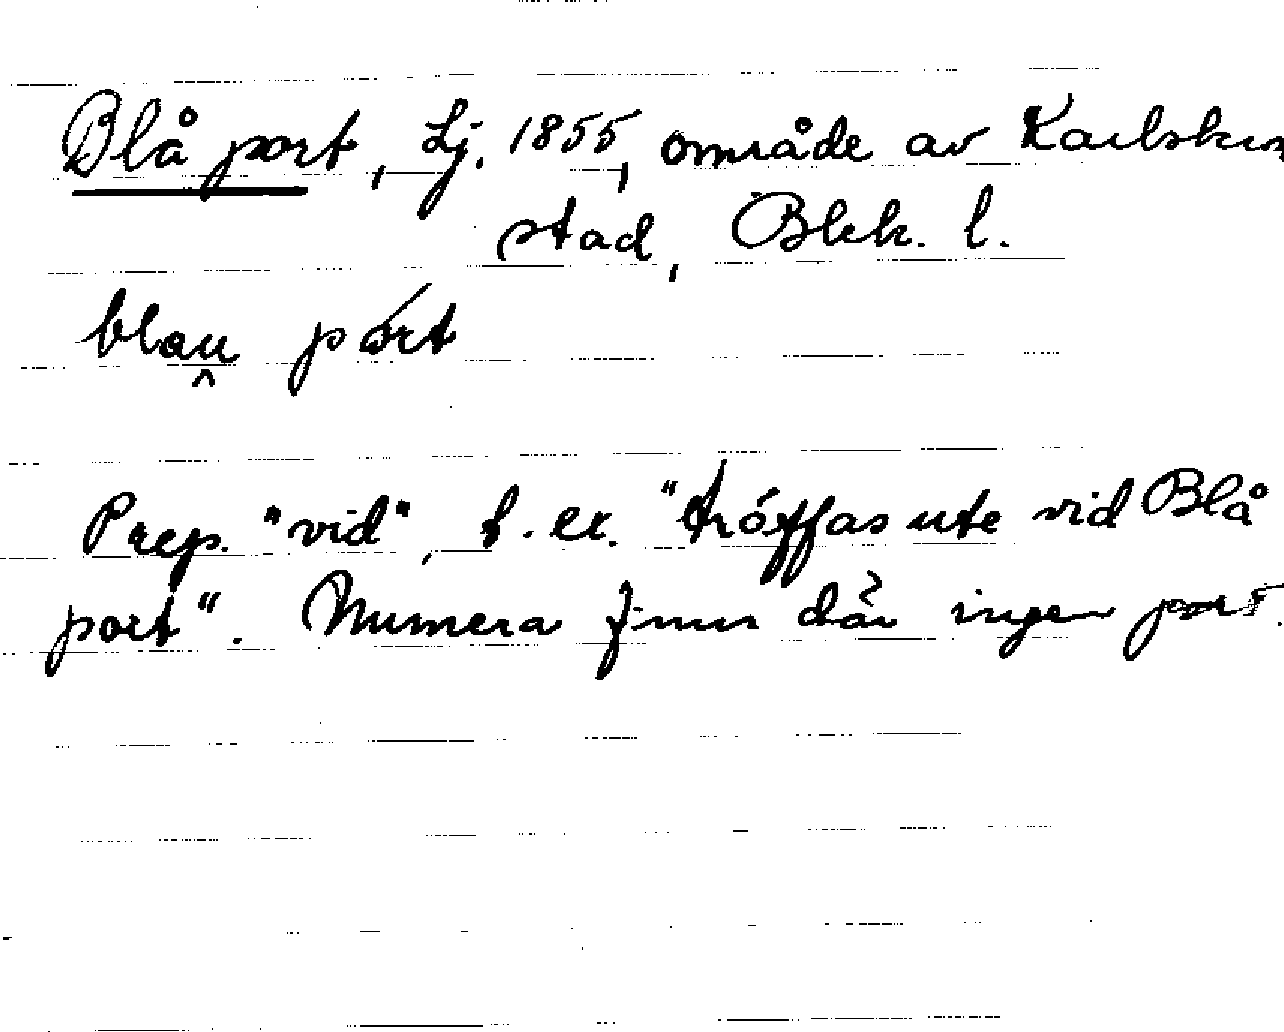 Blå port, Lj. 1855, område av Karlskrona
stad, Blek. l.
blau̯ pórt
Prep. "vid", t. ex. "träffas ute vid Blå
port". Numera finns där ingen port.